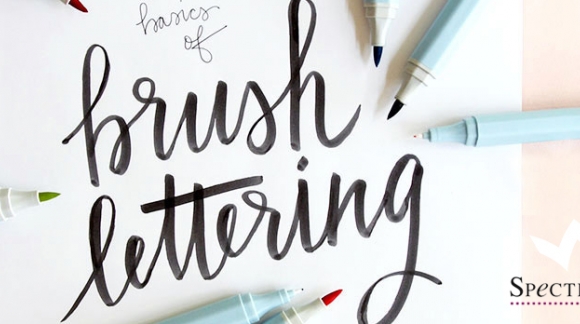 basics
of
brush
lettering